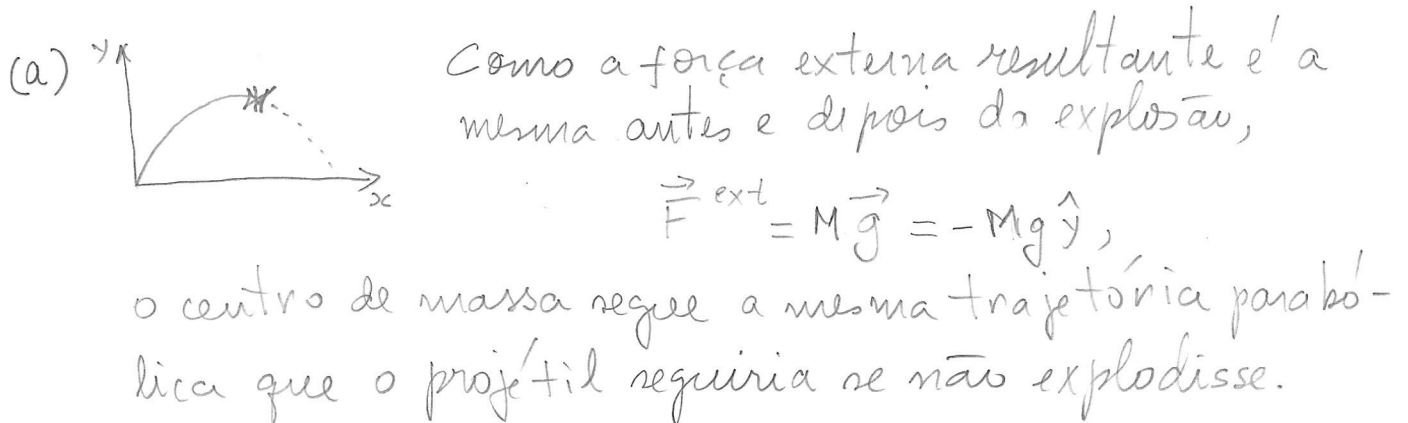 (a) y x
Como a força externa resultante é a
mesma antes e depois da explosão,
F⃗ ext = M g⃗ = - Mg ŷ,
o centro de massa segue a mesma trajetória parabó-
lica que o projétil seguiria se não explodisse.